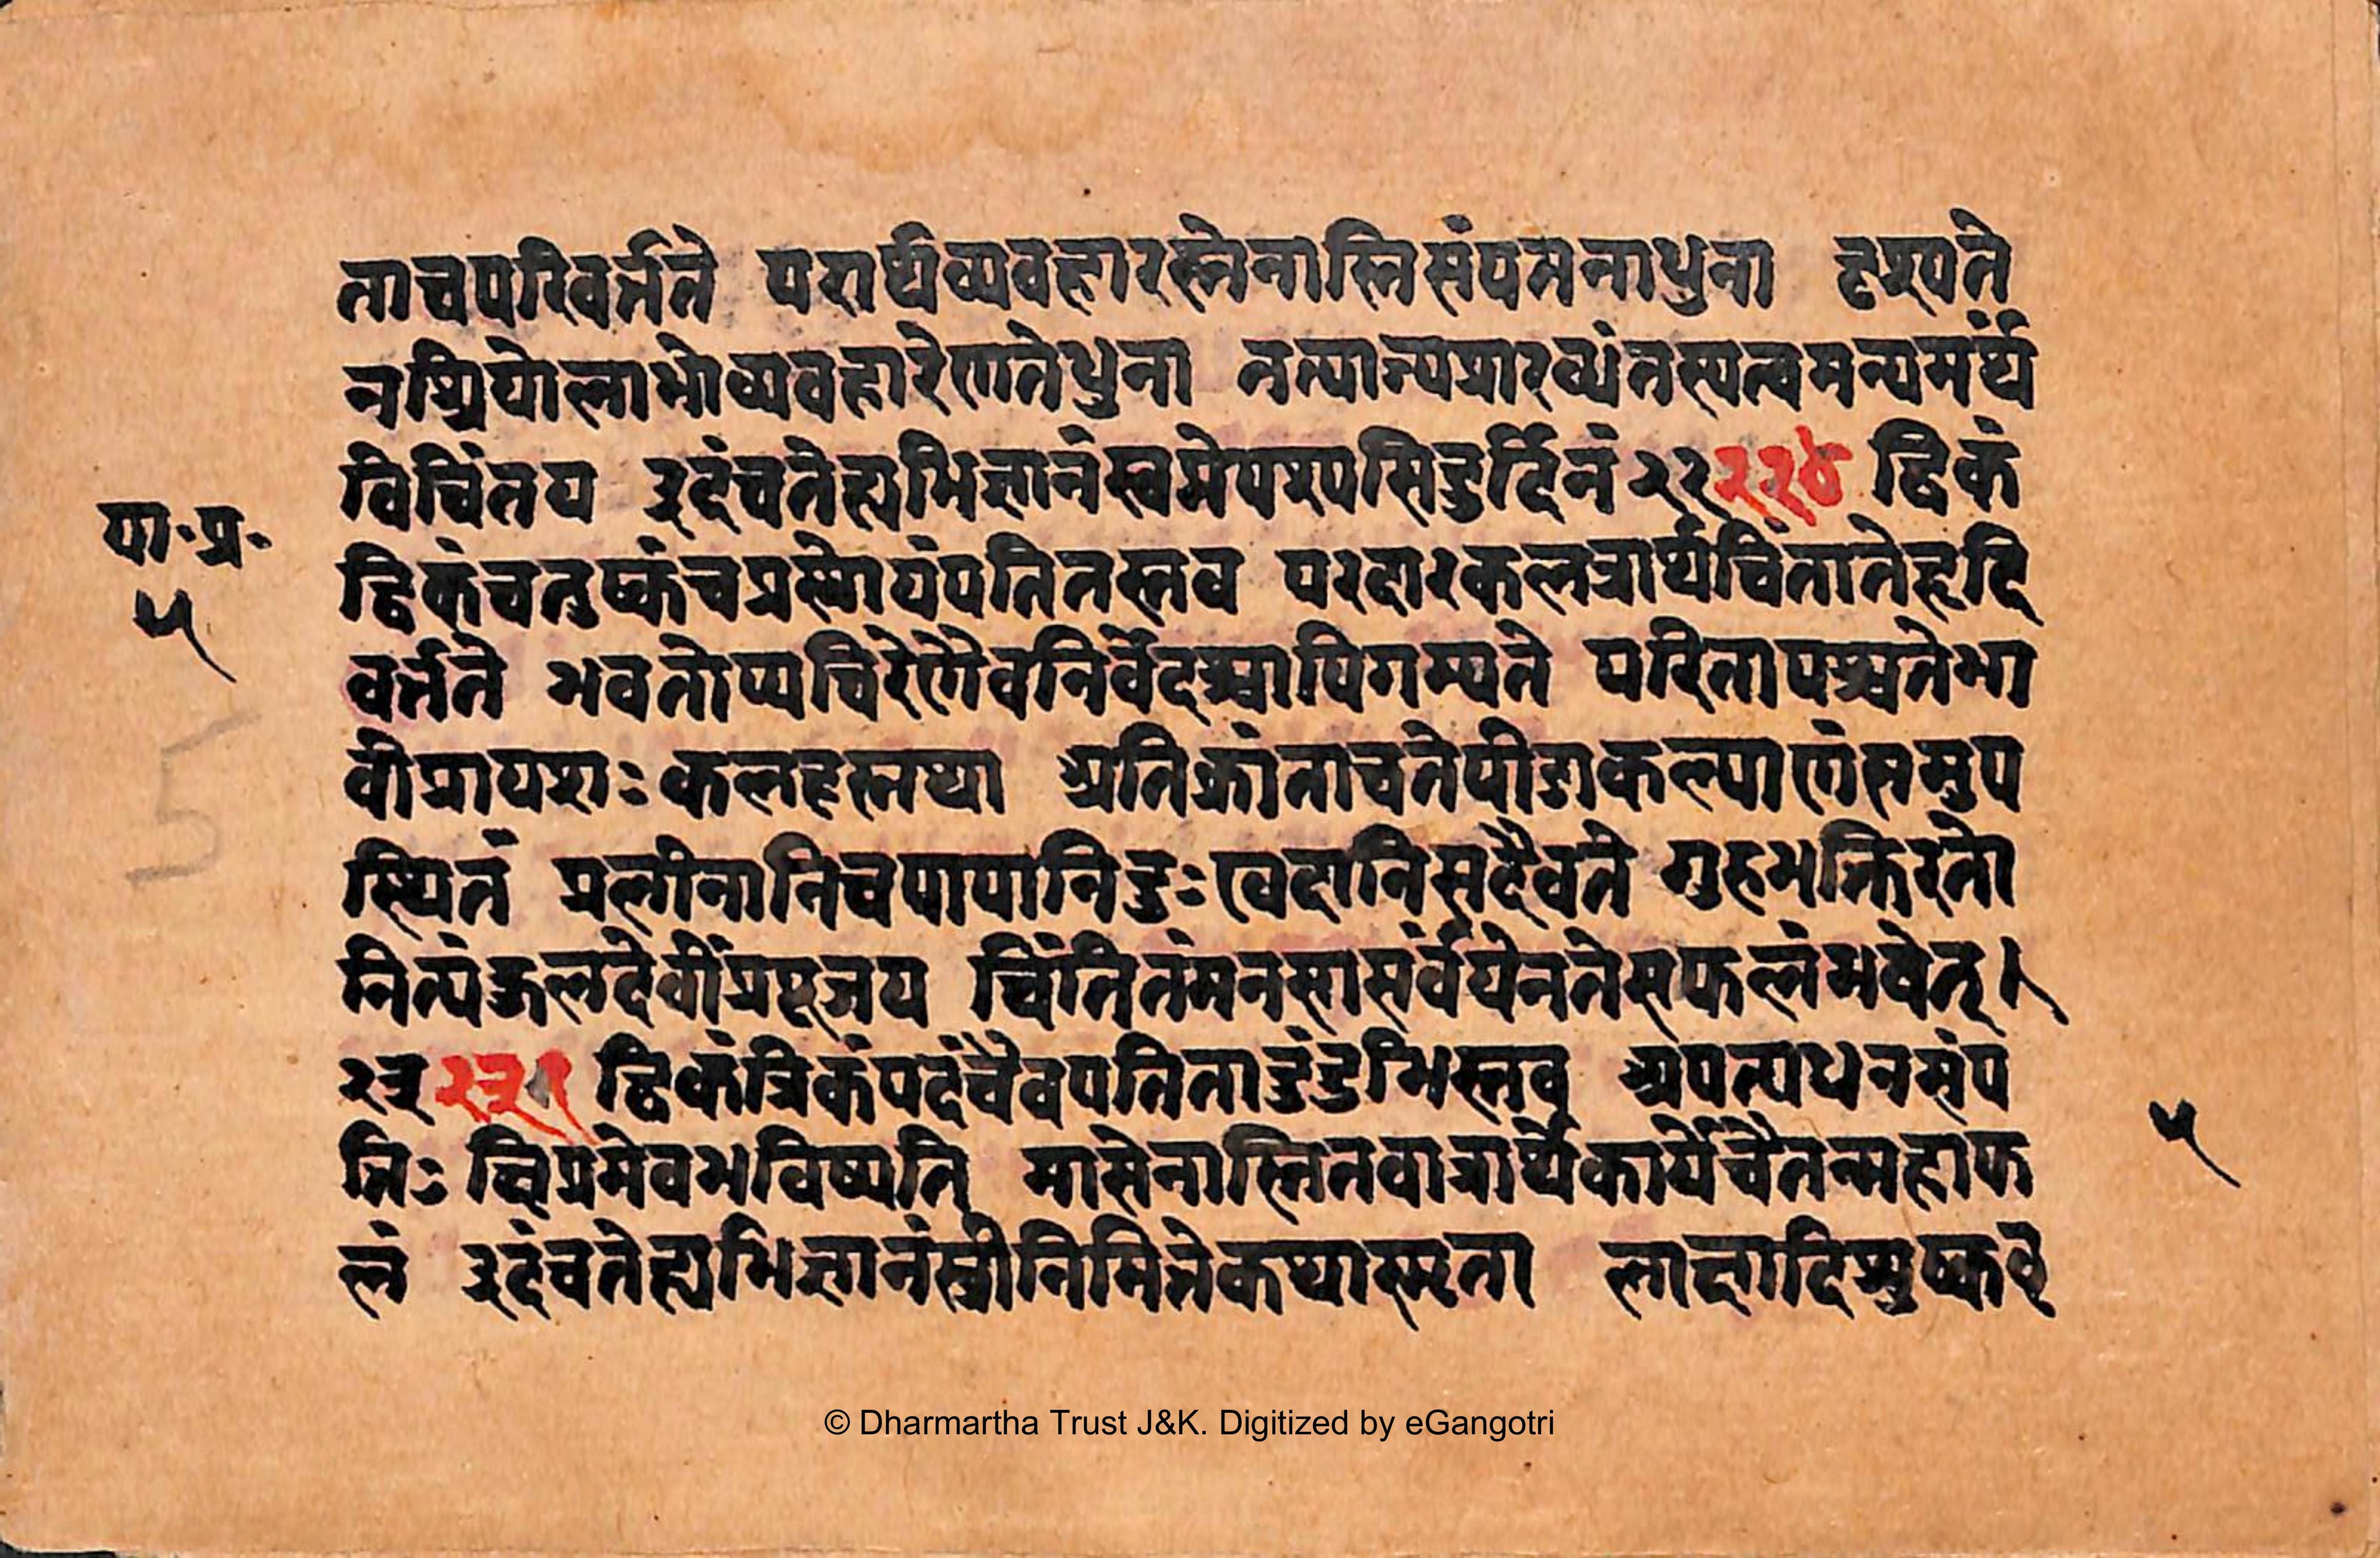 ताचपरिवर्त्तते परार्थव्यवहारस्तेनास्तिसंपतनाधुना दृश्यते
नप्रियोलाभोव्यवहारेणतेधुना नत्याज्यप्रारब्धंतस्यत्वमन्यमर्थं
विचिंतय इदंचतेह्यभिज्ञानंस्वप्नेपश्यसिदुर्दिनं २२ २२४ द्विकं
पा॰प्र॰
५
द्विकंचतुष्कंचप्रस्तोयंपतितस्तव परदारकलत्रार्थचिंतातेहृदि
वर्त्तते भवतोप्यचिरेणैवनिर्वेदश्चापिगम्यते परितापश्चतेभा
वीप्रायशः कलहस्तथा अतिक्रांताचतेपीडाकल्याणंसमुप
स्थितं प्रलीनानिचपापानिदुःखदानिसदैवते गुरुभक्तिरतो
नित्यंकुलदेवींप्रपूजय चिंतितंमनसासर्वंयेनतेसफलंभवेत् ।
२३ २३१ द्विकंत्रिकंपदंचैवपतितादुंदुभिस्तव अपत्यधनसंप
त्तिः क्षिप्रमेवभविष्यति मासेनास्तितवात्रार्थेकार्येचैतन्महाफ
५
लं इदंचतेह्यभिज्ञानंस्त्रीनिमित्तेकथास्मृता लाक्षादिशुष्कवृ
© Dharmartha Trust J&K. Digitized by eGangotri